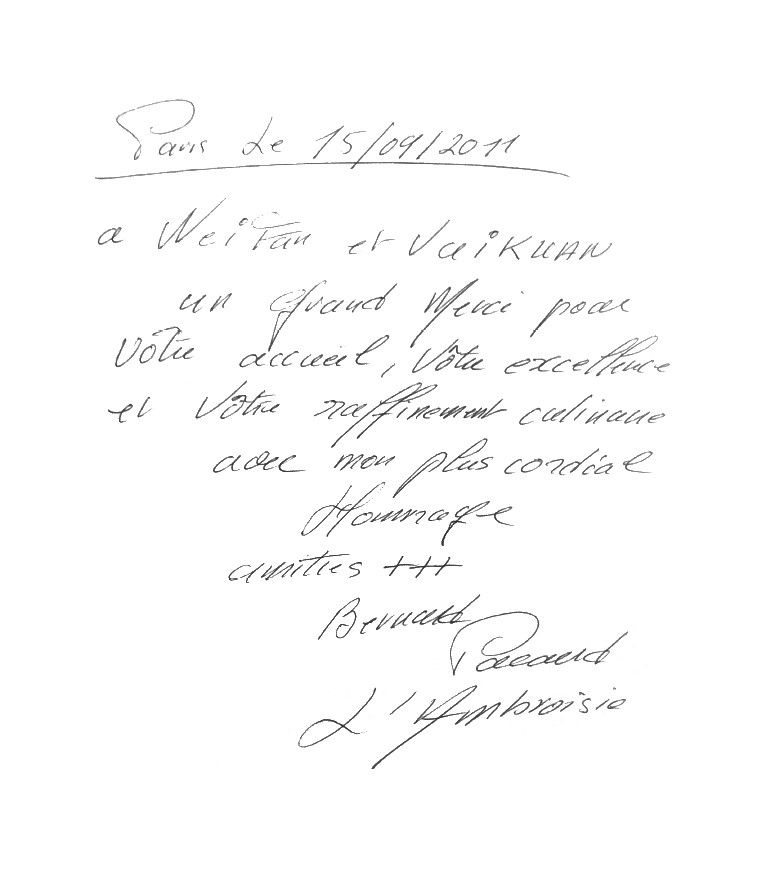 Paris Le 15/09/2011
a Wei Fan et VaiKUAN
un Grand Merci pour
Vôtre accueil, Vôtre excellence
et Vôtre raffinement culinaire
avec mon plus cordial
Hommage
amitiés +++
Bernard
Pacaud
L'Ambroisie